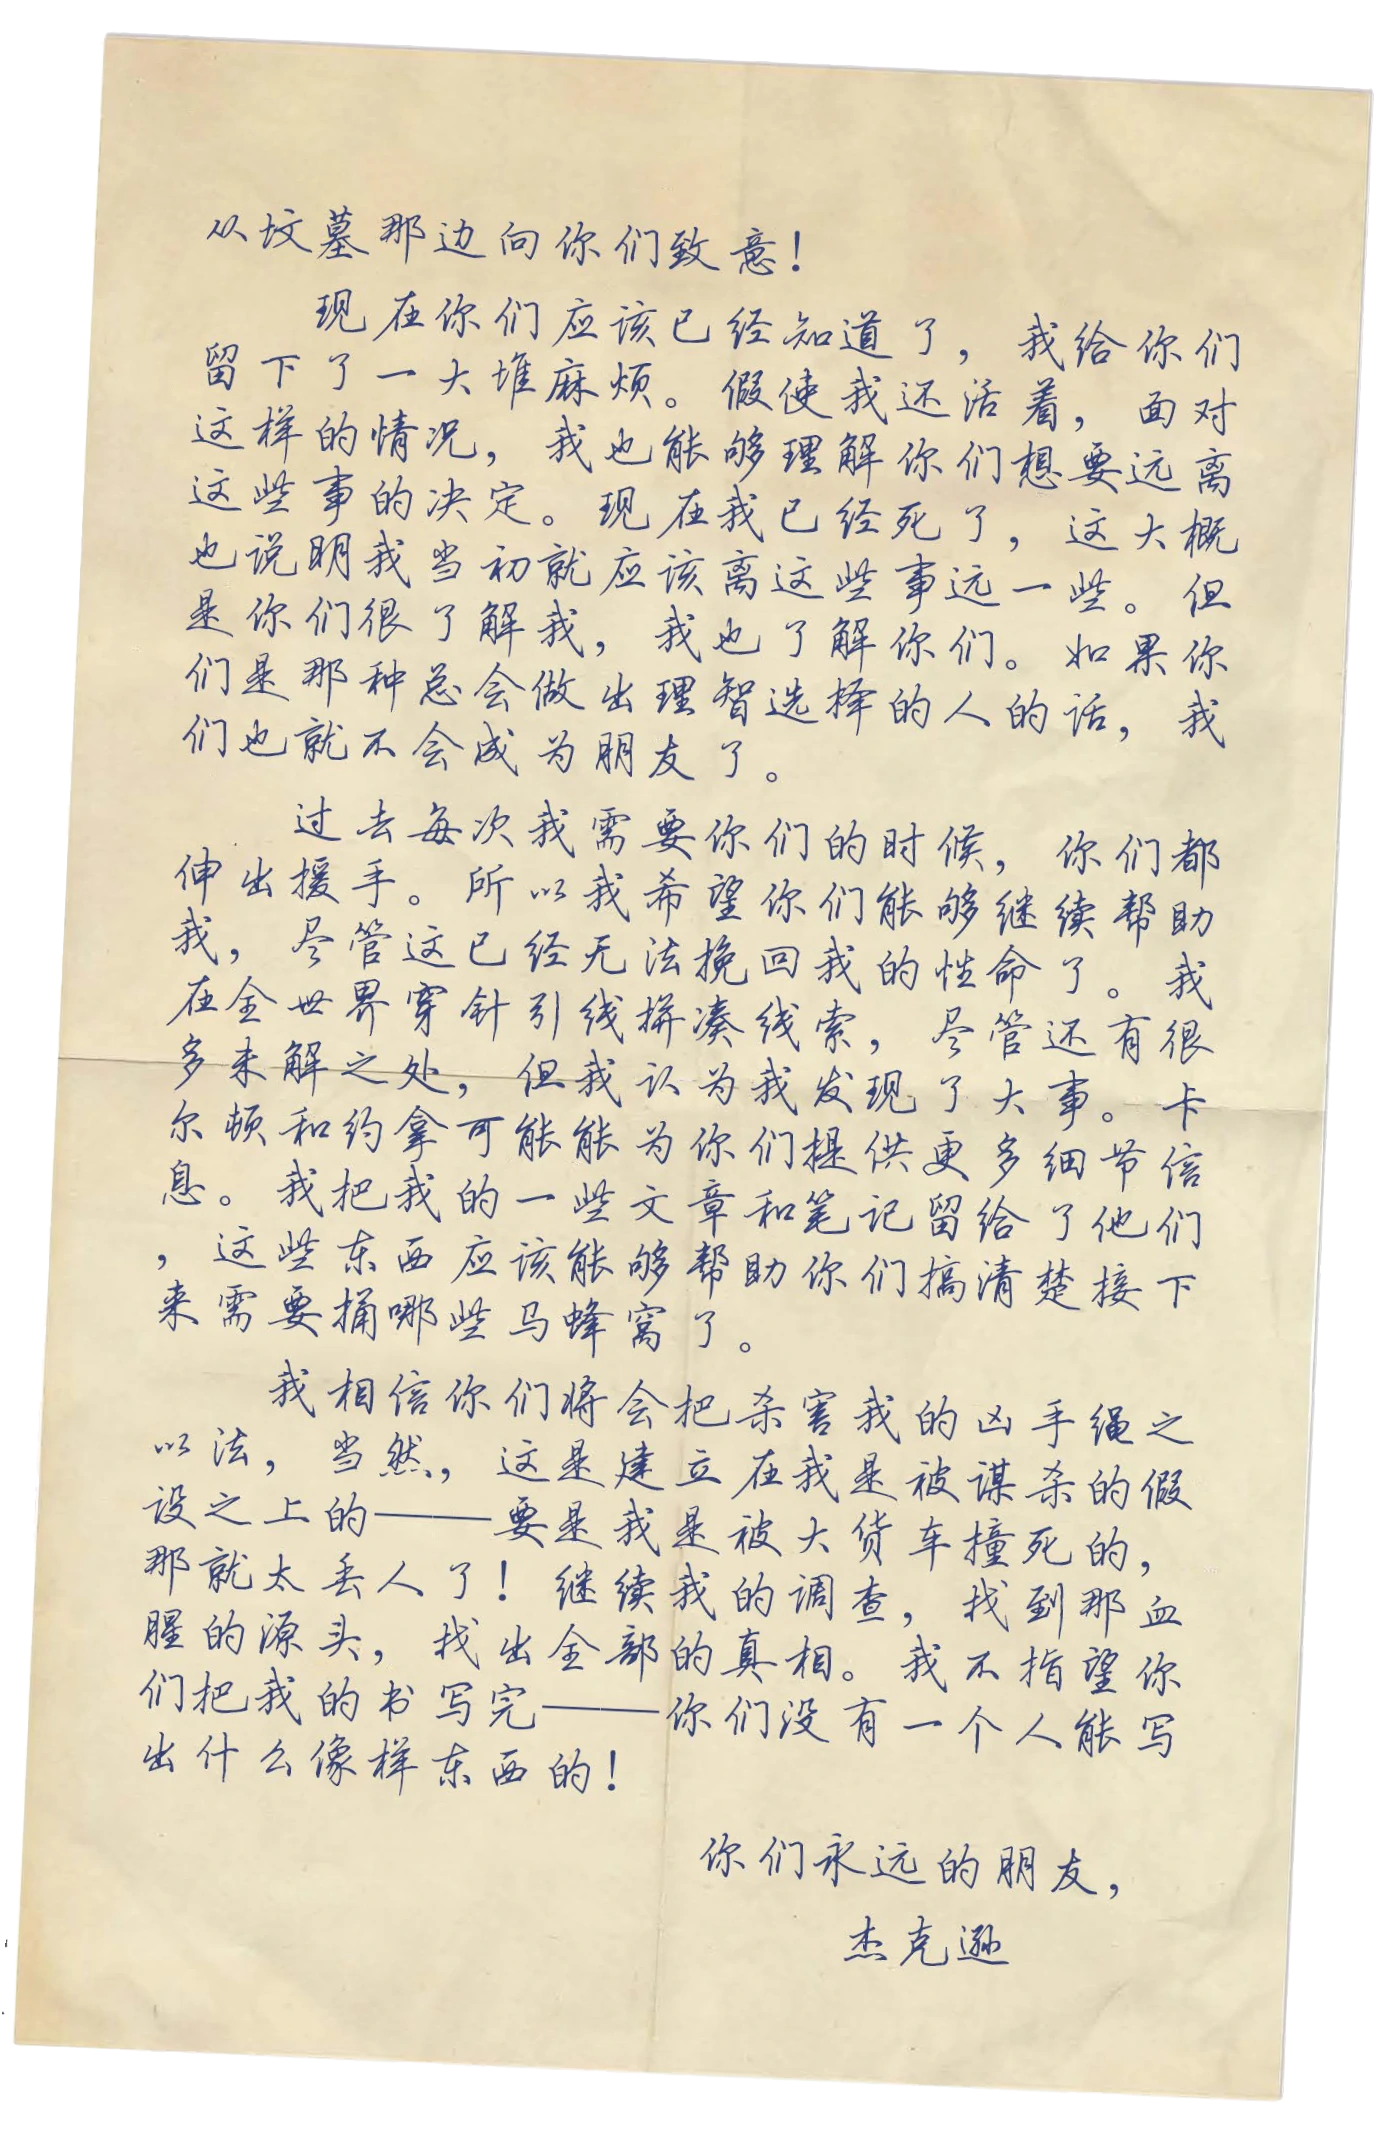 从坟墓那边向你们致意！
现在你们应该已经知道了，我给你们
留下了一大堆麻烦。假使我还活着，面对
这样的情况，我也能够理解你们想要远离
这些事的决定。现在我已经死了，这大概
也说明我当初就应该离这些事远一些。但
是你们很了解我，我也了解你们。如果你
们是那种总会做出理智选择的人的话，我
们也就不会成为朋友了。
过去每次我需要你们的时候，你们都
伸出援手。所以我希望你们能够继续帮助
我，尽管这已经无法挽回我的性命了。我
在全世界穿针引线拼凑线索，尽管还有很
多未解之处，但我认为我发现了大事。卡
尔顿和约拿可能能为你们提供更多细节信
息。我把我的一些文章和笔记留给了他们
，这些东西应该能够帮助你们搞清楚接下
来需要捅哪些马蜂窝了。
我相信你们将会把杀害我的凶手绳之
以法，当然，这是建立在我是被谋杀的假
设之上的——要是我是被大货车撞死的，
那就太丢人了！继续我的调查，找到那血
腥的源头，找出全部的真相。我不指望你
们把我的书写完——你们没有一个人能写
出什么像样东西的！
你们永远的朋友，
杰克逊